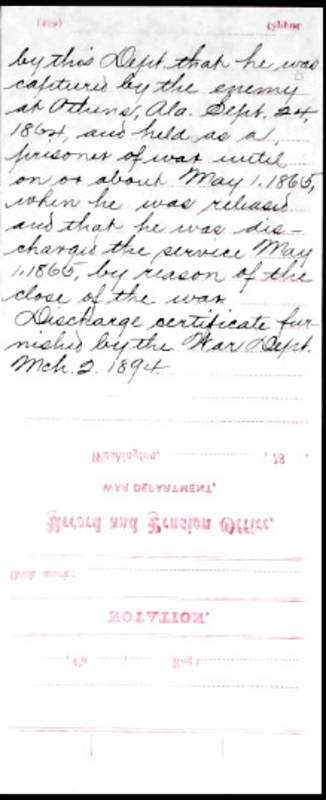 by this Dept. that he was
captured by the enemy
at Athens, Ala. Sept. 24,
1864, and held as a
prisoner of war until
on or about May 1. 1865,
when he was released
and that he was dis-
charged the service May
1. 1865, by reason of the
close of the war.
Discharge certificate fur-
nished by the War Dept.
Mch. 2. 1894.
Washington, , 18 .
WAR DEPARTMENT,
Record and Pension Office,
Book mark:
NOTATION.
, Co. , Reg't